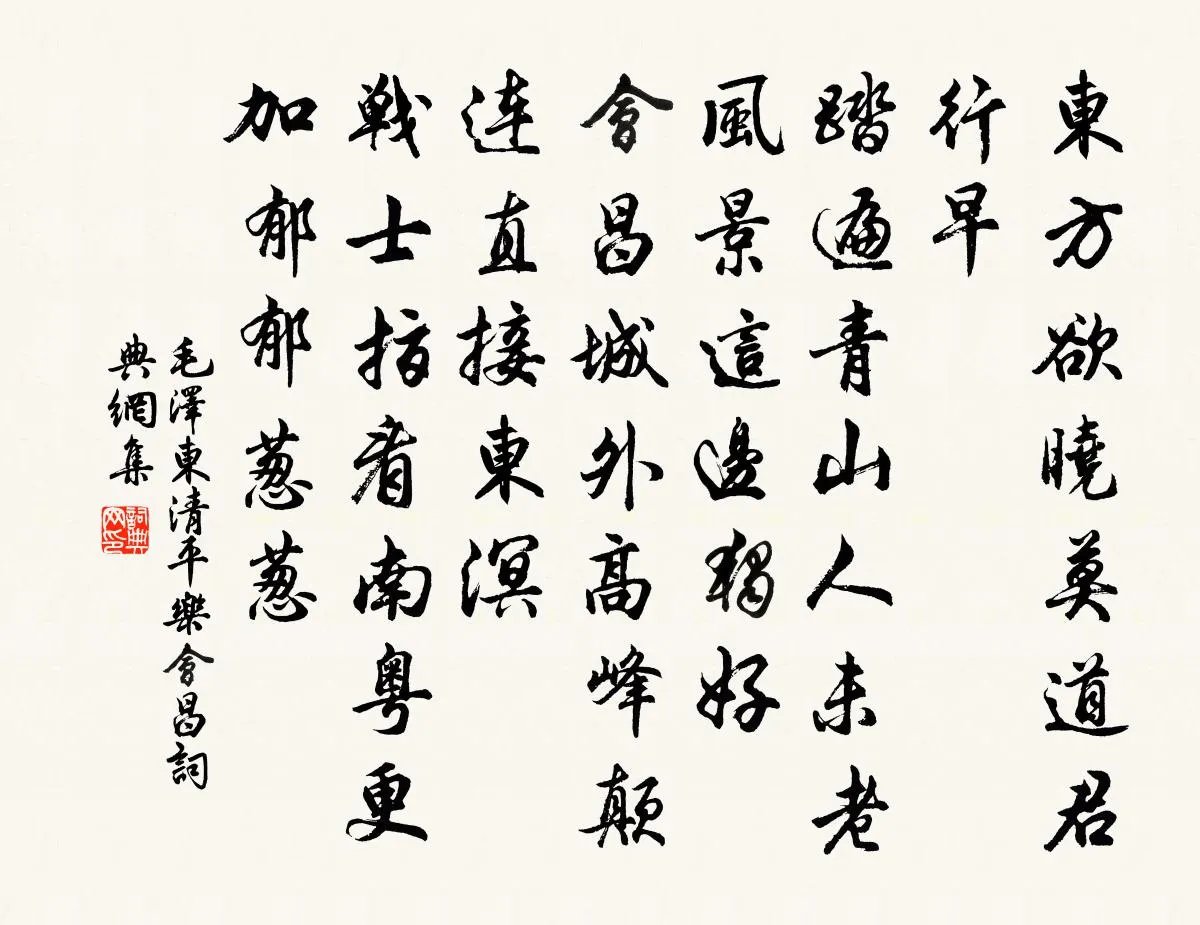 東方欲曉莫道君
行早
踏遍青山人未老
風景這邊獨好
會昌城外高峰顛
连直接東溟
戰士指看南粵更
加郁郁葱葱
毛澤東清平樂會昌詞
典網集
詞典
网印